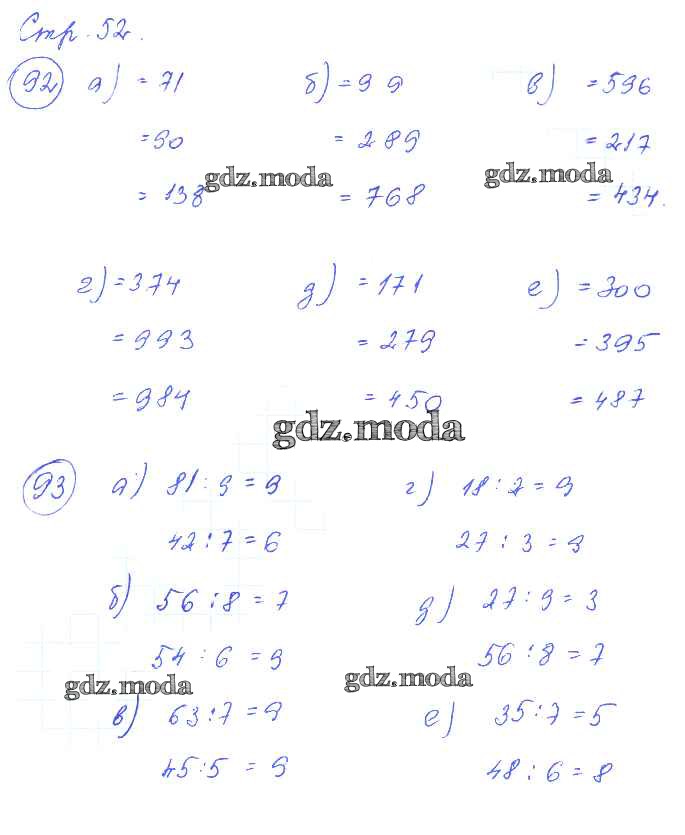 Стр. 52.
92 а) = 71 б) = 99 в) = 596
= 90 = 289 = 217
= 138 = 768 = 434.
gdz.moda gdz.moda
г) = 374 д) = 171 е) = 300
= 993 = 279 = 395
= 984 = 450 = 487
gdz.moda
93 а) 81 : 9 = 9 г) 18 : 2 = 9
42 : 7 = 6 27 : 3 = 9
б) 56 : 8 = 7 д) 27 : 9 = 3
54 : 6 = 9 56 : 8 = 7
gdz.moda gdz.moda
в) 63 : 7 = 9 е) 35 : 7 = 5
45 : 5 = 9 48 : 6 = 8